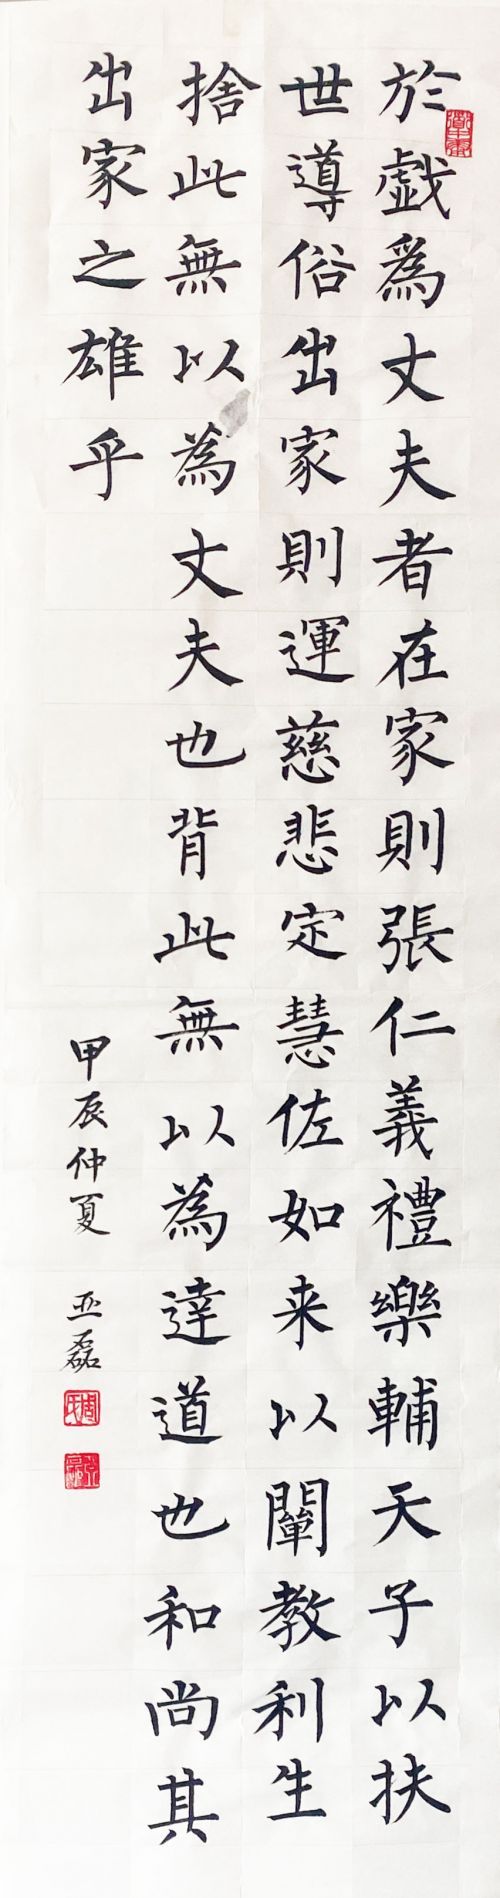 於戯為丈夫者在家則張仁義禮樂輔天子以扶
世導俗出家則運慈悲定慧佐如来以闡教利生
捨此無以為丈夫也背此無以為達道也和尚其
出家之雄乎
甲辰仲夏 亚磊